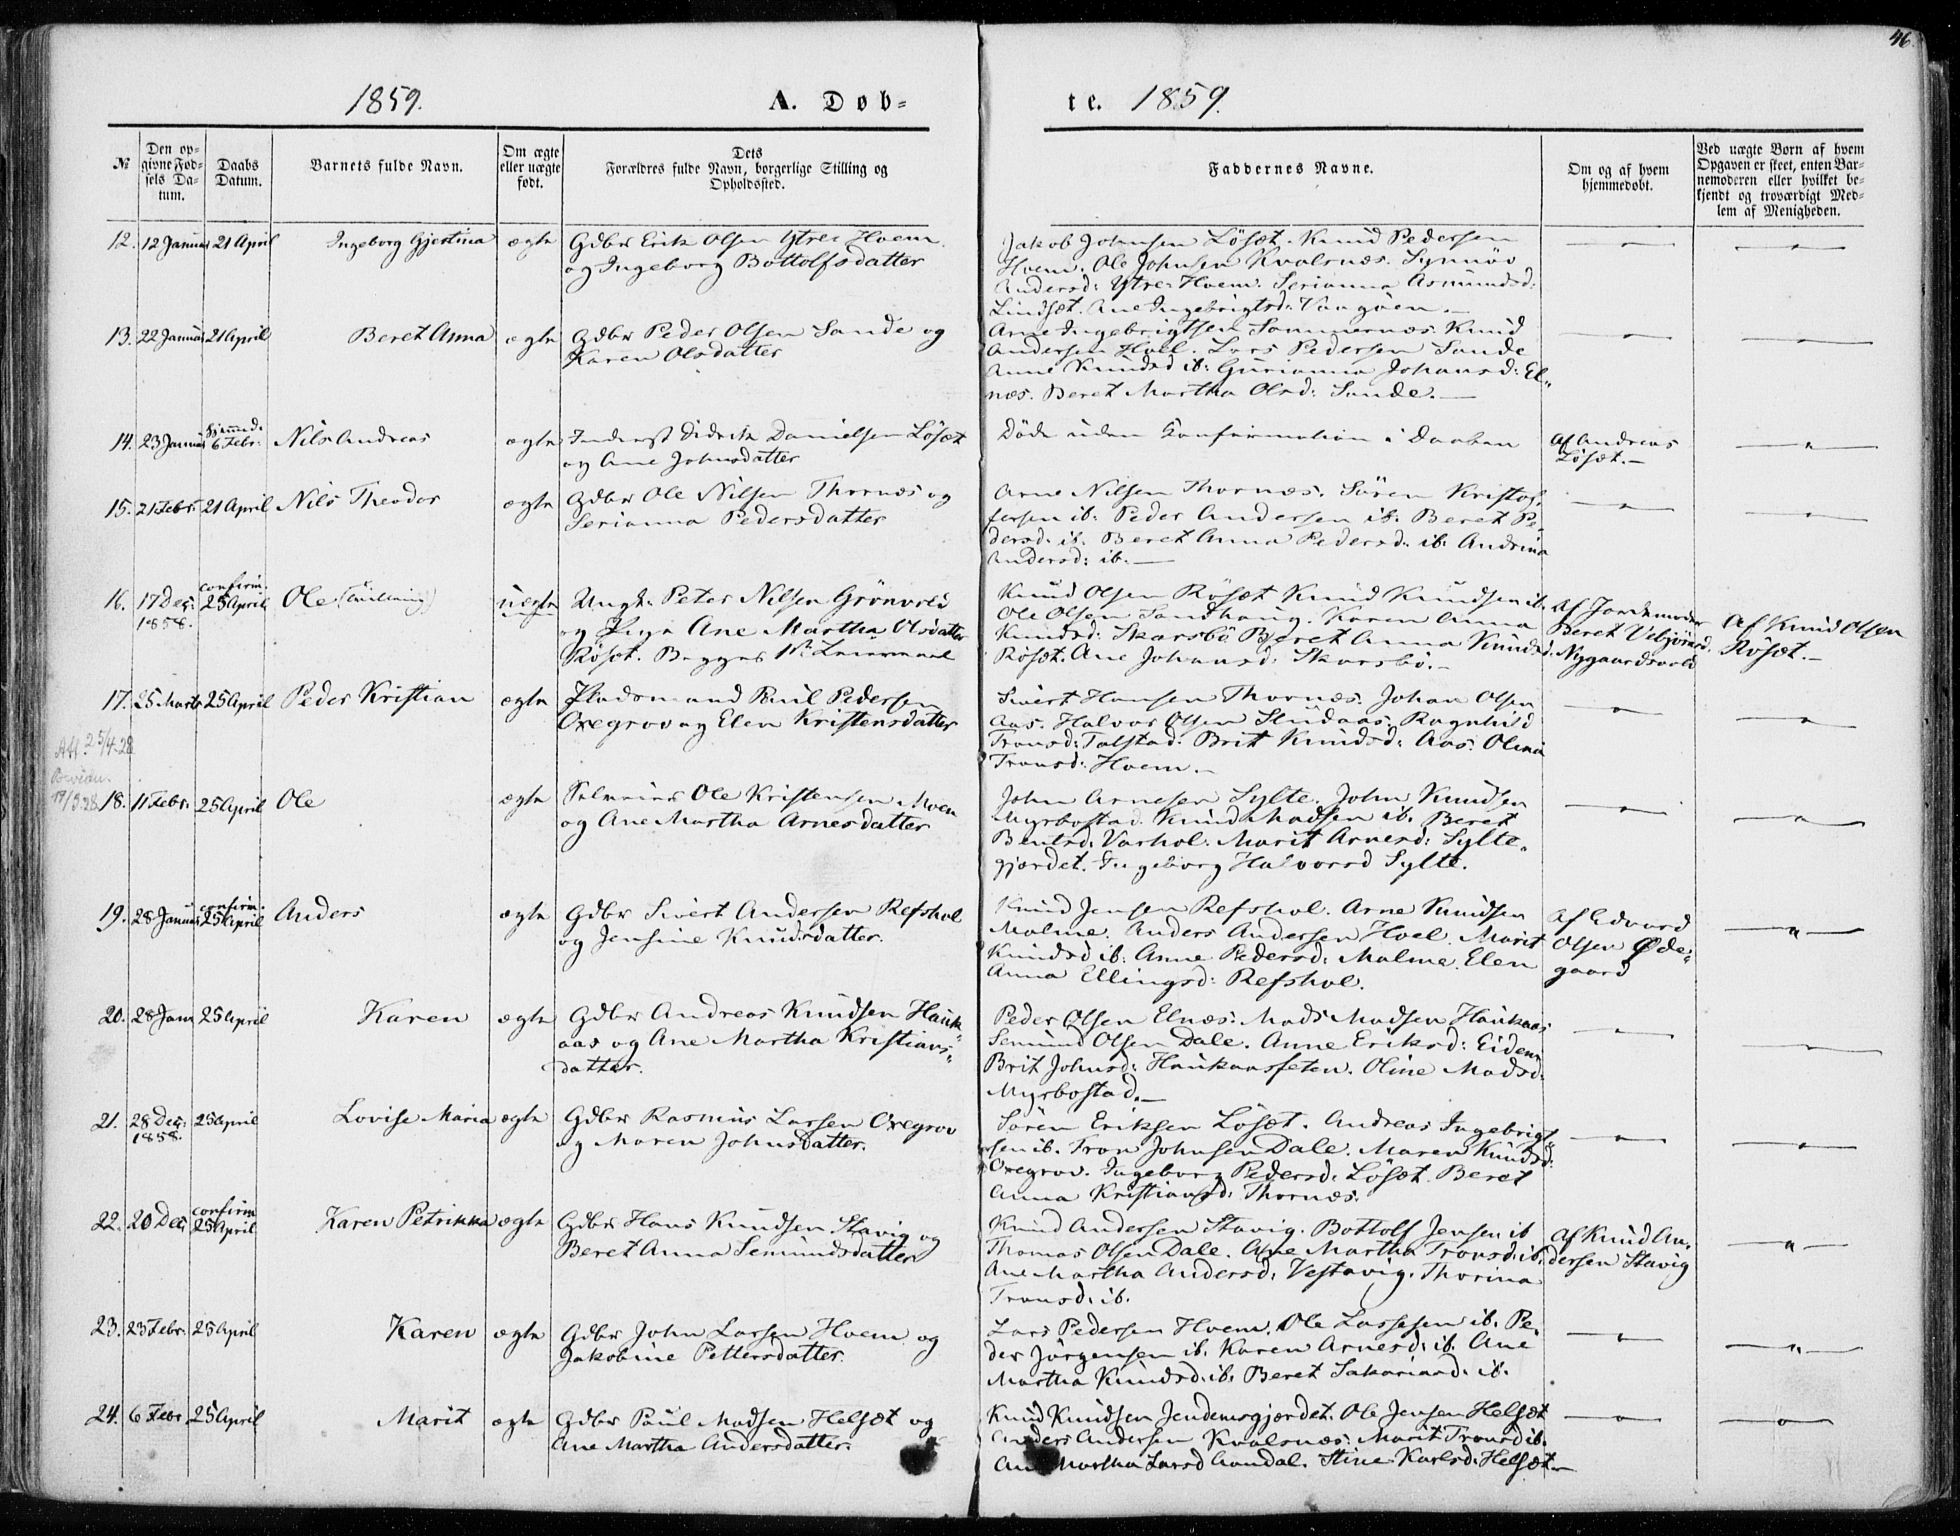 46.
1859. A. Døb=
te. 1859.
№
Den op=
givne Fød=
sels Da=
tum.
Daabs
Datum.
Barnets fulde Navn.
Om ægte
eller uægte
født.
Dets
Forældres fulde Navn, borgerlige Stilling og
Opholdssted.
Faddernes Navne.
Om og af hvem
hjemmedøbt.
Ved uægte Børn af hvem
Opgaven er skeet, enten Bar=
nemoderen eller hvilket be=
kjendt og troværdigt Med=
lem af Menigheden.
12. 12 Januar 21 April Ingeborg Gjertina ægte Gdbr Erik Olsen Ytre Hoem
og Ingeborg Bottolfsdatter
Jakob Johnsen Lösæt. Knud Pedersen
Hoem. Ole Johnsen Kvalsnæs. Synnöv
Andersd: Ytre Hoem. Serianna Asmundsd:
Lindsæt. Ane Ingebrigtsd: Vaagöen.—
13. 22 Januar 21 April Beret Anna ægte Gdbr Peder Olsen Sande og
Karen Olsdatter
Arne Ingebrigtsen Sammernæs. Knud
Andersen Hoel. Lars Pedersen Sande
Anne Knudsd ib: Gurianna Johansd: El=
næs. Beret Martha Olsd: Sande.—
14. 23 Januar hjemmed. 6 Febr: Nils Andreas ægte Inderst Didrik Danielsen Lösæt
og Ane Johnsdatter
Döde uden Confirmation i Daaben
Af Andreas
Lösæt.—
15. 21 Febr: 21 April Nils Theodor ægte Gdbr Ole Nilsen Thornæs og
Serianna Pedersdatter
Arne Nilsen Thornæs. Sören Kristof=
fersen ib: Peder Andersen ib: Beret Pe=
dersd: ib. Beret Anna Pedersd: ib: Andrina
Andersd: ib.—
16. 17 Dec: 1858. confirm. 25 April Ole (Tvilling) uægte Ungk: Peter Nilsen Grönvold
og Pige Ane Martha Olsdatter
Rösæt. Begges 1ste Leiermaal
Knud Olsen Rösæt Knud Knudsen ib.
Ole Olsen Sandhaug. Karen Anna
Knudsd: Skarsbö Beret Anna Knudsd.
Rösæt. Ane Johansd: Skarsbö.—
Af Jordemoder
Beret Vebjörnsd.
Nygaardsvold
Af Knud Olsen
Rösæt.—
17. 25 Marts 25 April Peder Kristian ægte Pladsmand Paul Pedersen
Oregrov og Elen Kristensdatter
Sivert Hansen Thornæs. Johan Olsen
Aas. Halvor Olsen Studaas. Ragnhild
Tronsd: Talstad. Brit Knudsd: Aas. Olina
Tronsd: Hoem.—
Att 25/4-28
19/3.28
18. 11 Febr: 25 April Ole ægte Selveier Ole Kristensen Moen
og Ane Martha Arnesdatter
John Arnesen Sylte. John Knudsen
Myrbostad. Knud Madsen ib. Beret
Bentsd: Varhol. Marit Arnesd: Sylte=
gjærdet. Ingeborg Halvorsd Sylte.
19. 28 Januar confirm. 25 April Anders ægte Gdbr Sivert Andersen Refshol
og Jensine Knudsdatter.
Knud Jensen Refshol. Arne Knudsen
Malme. Anders Andersen Hoel. Marit
Knudsd ib: Anne Pedersd: Malme. Elen
Anna Ellingsd: Refshol.
Af Edvard
Olsen Øde=
gaard
20. 28 Janr 25 April Karen ægte Gdbr Andreas Knudsen Hauk=
aas og Ane Martha Kristians=
datter.
Peder Olsen Elnæs. Mads Madsen Haukaas
Semund Olsen Dale. Anne Eriksd: Eidem
Brit Johnsd: Haukaassæten. Oline Madsd:
Myrbostad.—
21. 28 Dec: 1858. 25 April Lovise Maria ægte Gdbr Rasmus Larsen Oregrov
og Maren Johnsdatter.
Sören Eriksen Lösæt. Andreas Ingebrigt=
sen ib. Tron Johnsen Dale. Maren Knudsd:
Oregrov. Ingeborg Pedersd: Lösæt. Beret
Anna Kristiansd: Thornæs.
22. 20 Dec: confirm 25 April Karen Petrikka ægte Gdbr Hans Knudsen Stavig og
Beret Anna Semundsdatter
Knud Andersen Stavig. Bottolf Jensen ib
Thomas Olsen Dale. Ane Martha Tronsd: ib.
Ane Martha Andersd: Vestavig. Thorina
Tronsd: ib.
Af Knud An=
dersen Stavig
23. 23 Febr: 25 April Karen ægte Gdbr John Larsen Hoem og
Jakobine Pettersdatter.
Lars Pedersen Hoem. Ole Lassesen ib. Pe=
der Jörgensen ib. Karen Arnesd: ib. Ane
Martha Knudsd: ib. Beret Sakariasd: ib.
24. 6 Febr 25 April Marit ægte Gdbr Paul Madsen Helsæt og
Ane Martha Andersdatter.
Knud Knudsen Jendemsgjærdet. Ole Jensen Helsæt
Anders Andersen Kvalsnæs. Marit Tronsd ib.
Ane Martha Larsd Aandal. Stine Karlsd: Helsæt.—